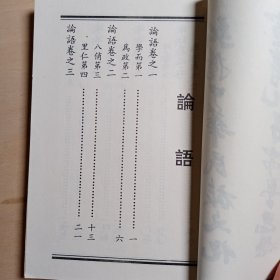 論語
論語卷之一
學而第一⋯⋯一
爲政第二⋯⋯六
論語卷之二
八佾第三⋯⋯十三
里仁第四⋯⋯二一
論語卷之三